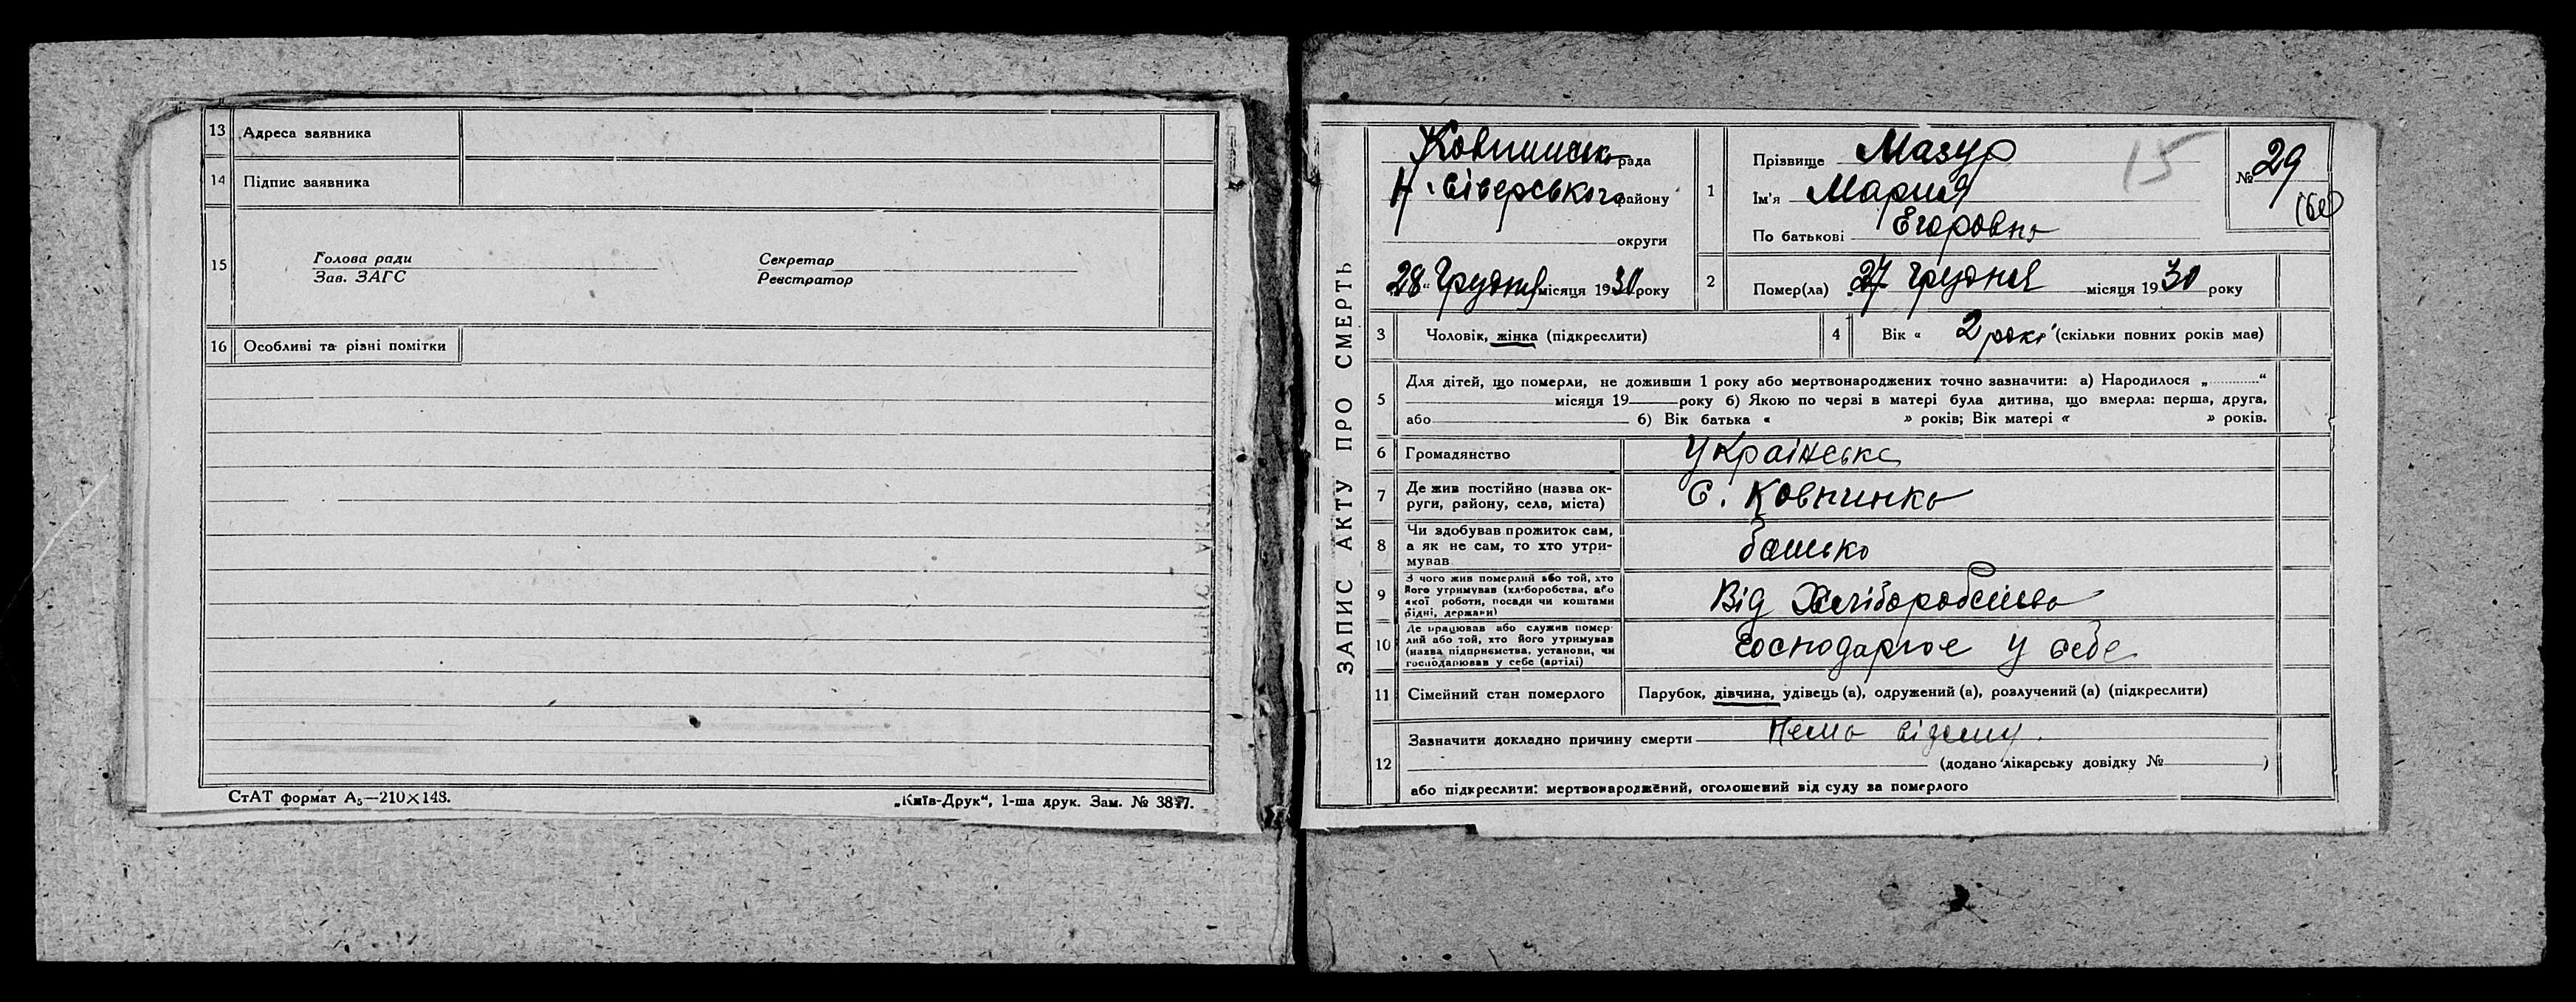 13 Адреса заявника
14 Підпис заявника
15 Голова ради Секретар
Зав. ЗАГС Реєстратор
16 Особливі та різні помітки
СтАТ формат А5—210×143.
„Київ-Друк“, 1-ша друк. Зам. № 3877.
ЗАПИС АКТУ ПРО СМЕРТЬ
Ковпинськ рада
Н. Сіверського району
округи
28 Грудня місяця 1930 року
1 Прізвище Мазур
Ім'я Мария
По батькові Егоровна
15
№ 29
2 Помер(ла) 27 грудня місяця 1930 року
3 Чоловік, жінка (підкреслити)
4 Вік « 2 роки (скільки повних років мав)
5 Для дітей, що померли, не доживши 1 року або мертвонароджених точно зазначити: а) Народилося „ “
місяця 19 року б) Якою по черзі в матері була дитина, що вмерла: перша, друга,
або б) Вік батька « » років; Вік матері « » років.
6 Громадянство Українська
7 Де жив постійно (назва ок-
руги, району, села, міста) С. Ковпинка
8 Чи здобував прожиток сам,
а як не сам, то хто утри-
мував батько
9 З чого жив померлий або той, хто
його утримував (хліборобства, або
якої роботи, посади чи коштами
рідні, держави) Від Хліборобства
10 Де працював або служив помер-
лий або той, хто його утримував
(назва підприємства, установи, чи
господарював у себе (артілі) господарює у себе
11 Сімейний стан померлого Парубок, дівчина, удівець (а), одружений (а), розлучений (а) (підкреслити)
12 Зазначити докладно причину смерти Нема відому.
(додано лікарську довідку № )
або підкреслити: мертвонароджений, оголошений від суду за померлого